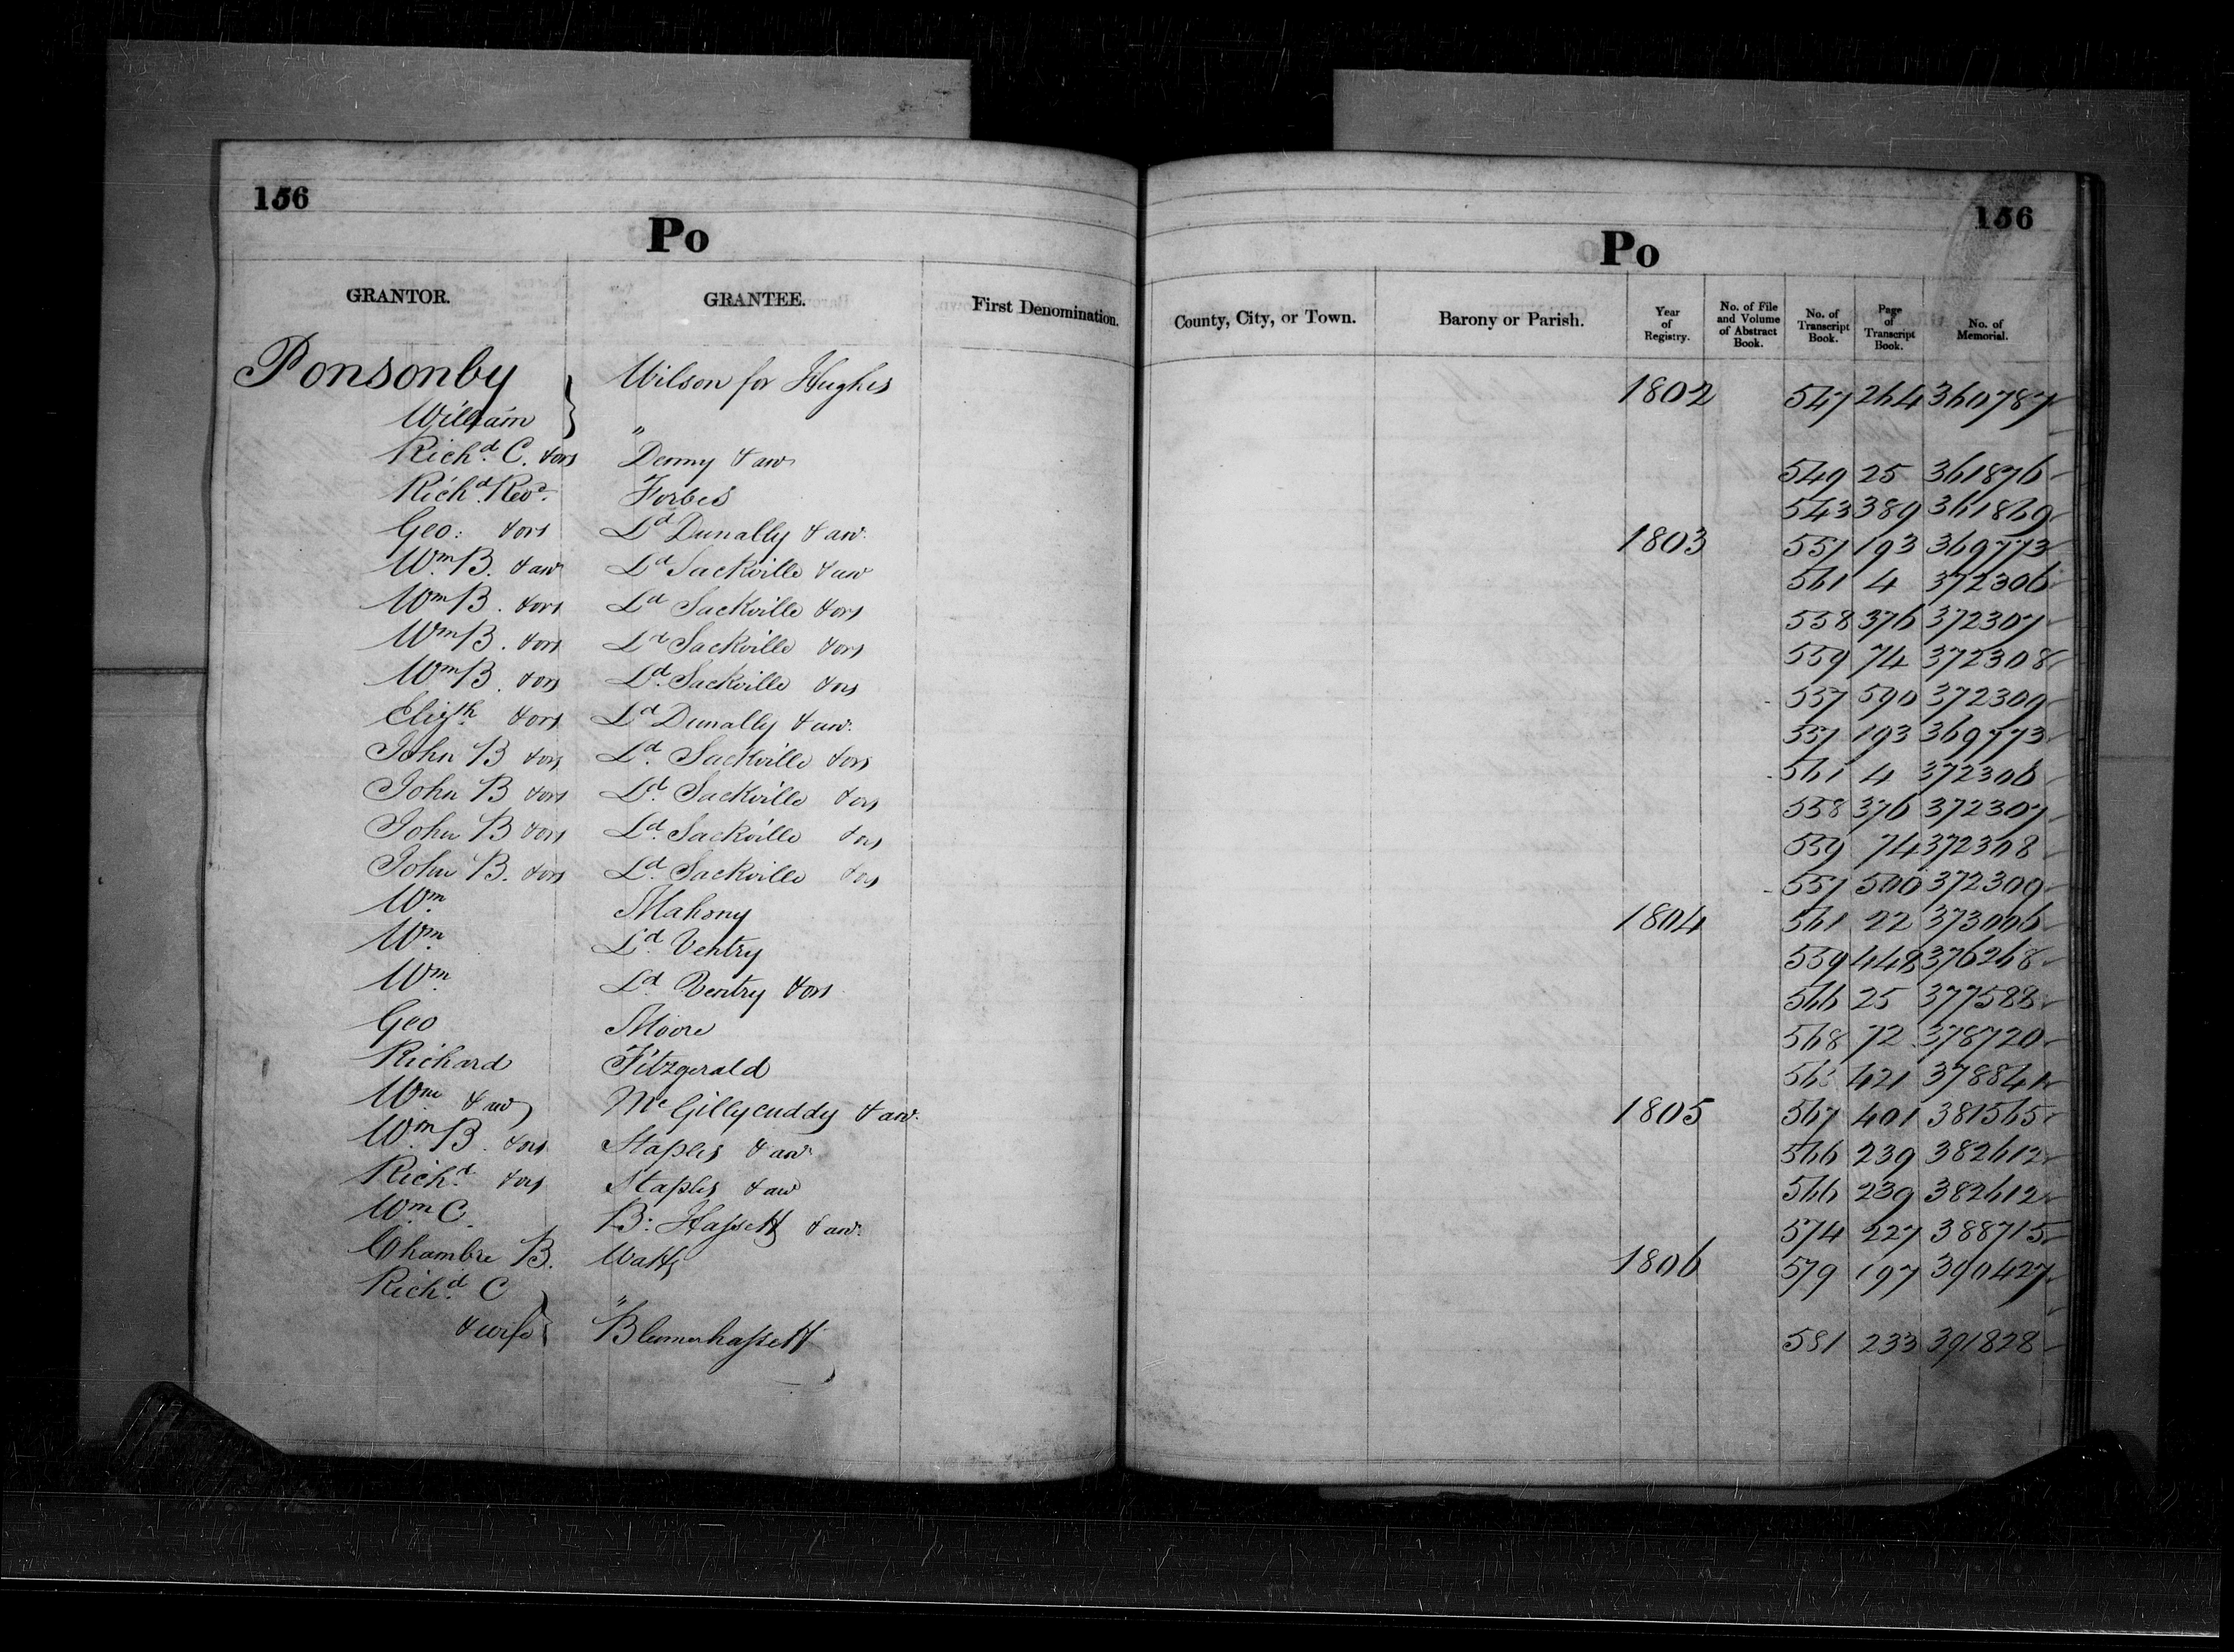 156
Po
156
Po
GRANTOR. GRANTEE. First Denomination. County, City, or Town. Barony or Parish. Year of Registry. No. of File and Volume of Abstract Book. No. of Transcript Book. Page of Transcript Book. No. of Memorial.
Ponsonby Wilson for Hughes 1802 547 264 360787
William "
Richd. C. &ors Denny & anr 549 25 361876
Richd. Revd. Forbes 543 389 361869
Geo: &ors Ld Dunally & anr. 1803 557 193 369773
Wm B. & anr Ld Sackville & anr 561 4 372306
Wm B. &ors Ld Sackville &ors 558 376 372307
Wm B. &ors Ld Sackville &ors 559 74 372308
Wm B. &ors Ld. Sackville &ors 557 590 372309
Elizth &ors Ld Dunally & anr. 557 193 369773
John B &ors Ld. Sackville &ors 561 4 372306
John B &ors Ld. Sackville &ors 558 376 372307
John B &ors Ld. Sackville &ors 559 74 372308
John B. &ors Ld. Sackville &ors 557 372309
Wm Mahony 1804 561 22 373006
Wm. Ld Ventry 559 448 376268
Wm. Ld Ventry &ors 566 25 377588
Geo Moore 568 72 378720
Richard Fitzgerald 421 378841
Wm & anr Mc Gillycuddy & anr. 1805 567 401 381565
Wm B. &ors Staples & anr 566 239 382612
Richd. &ors Staples & anr 566 239 382612
Wm C. B: Hassett & anr. 574 227 388715
Chambre B. Watts 1806 579 197 390427
Richd. C "
& wife Blennerhassett 581 233 391828